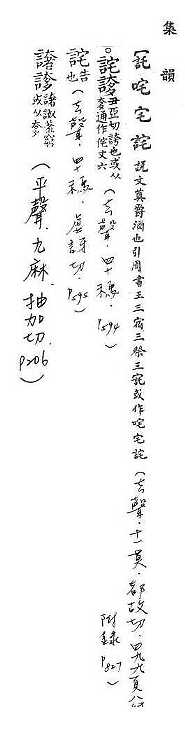 集韻
〔託咤宅詫說文奠爵酒也引周書王三宿三祭三託或作咤宅詫(去聲.十一莫.都故切.四九九頁
附錄P827)
。詫誇丑亞切誇也或从
夸通作侘文六(去聲.四十禡.P594)
詫告也(去聲.四十禡.虛訝切.P595)
(平聲.九麻.抽加切.P206)